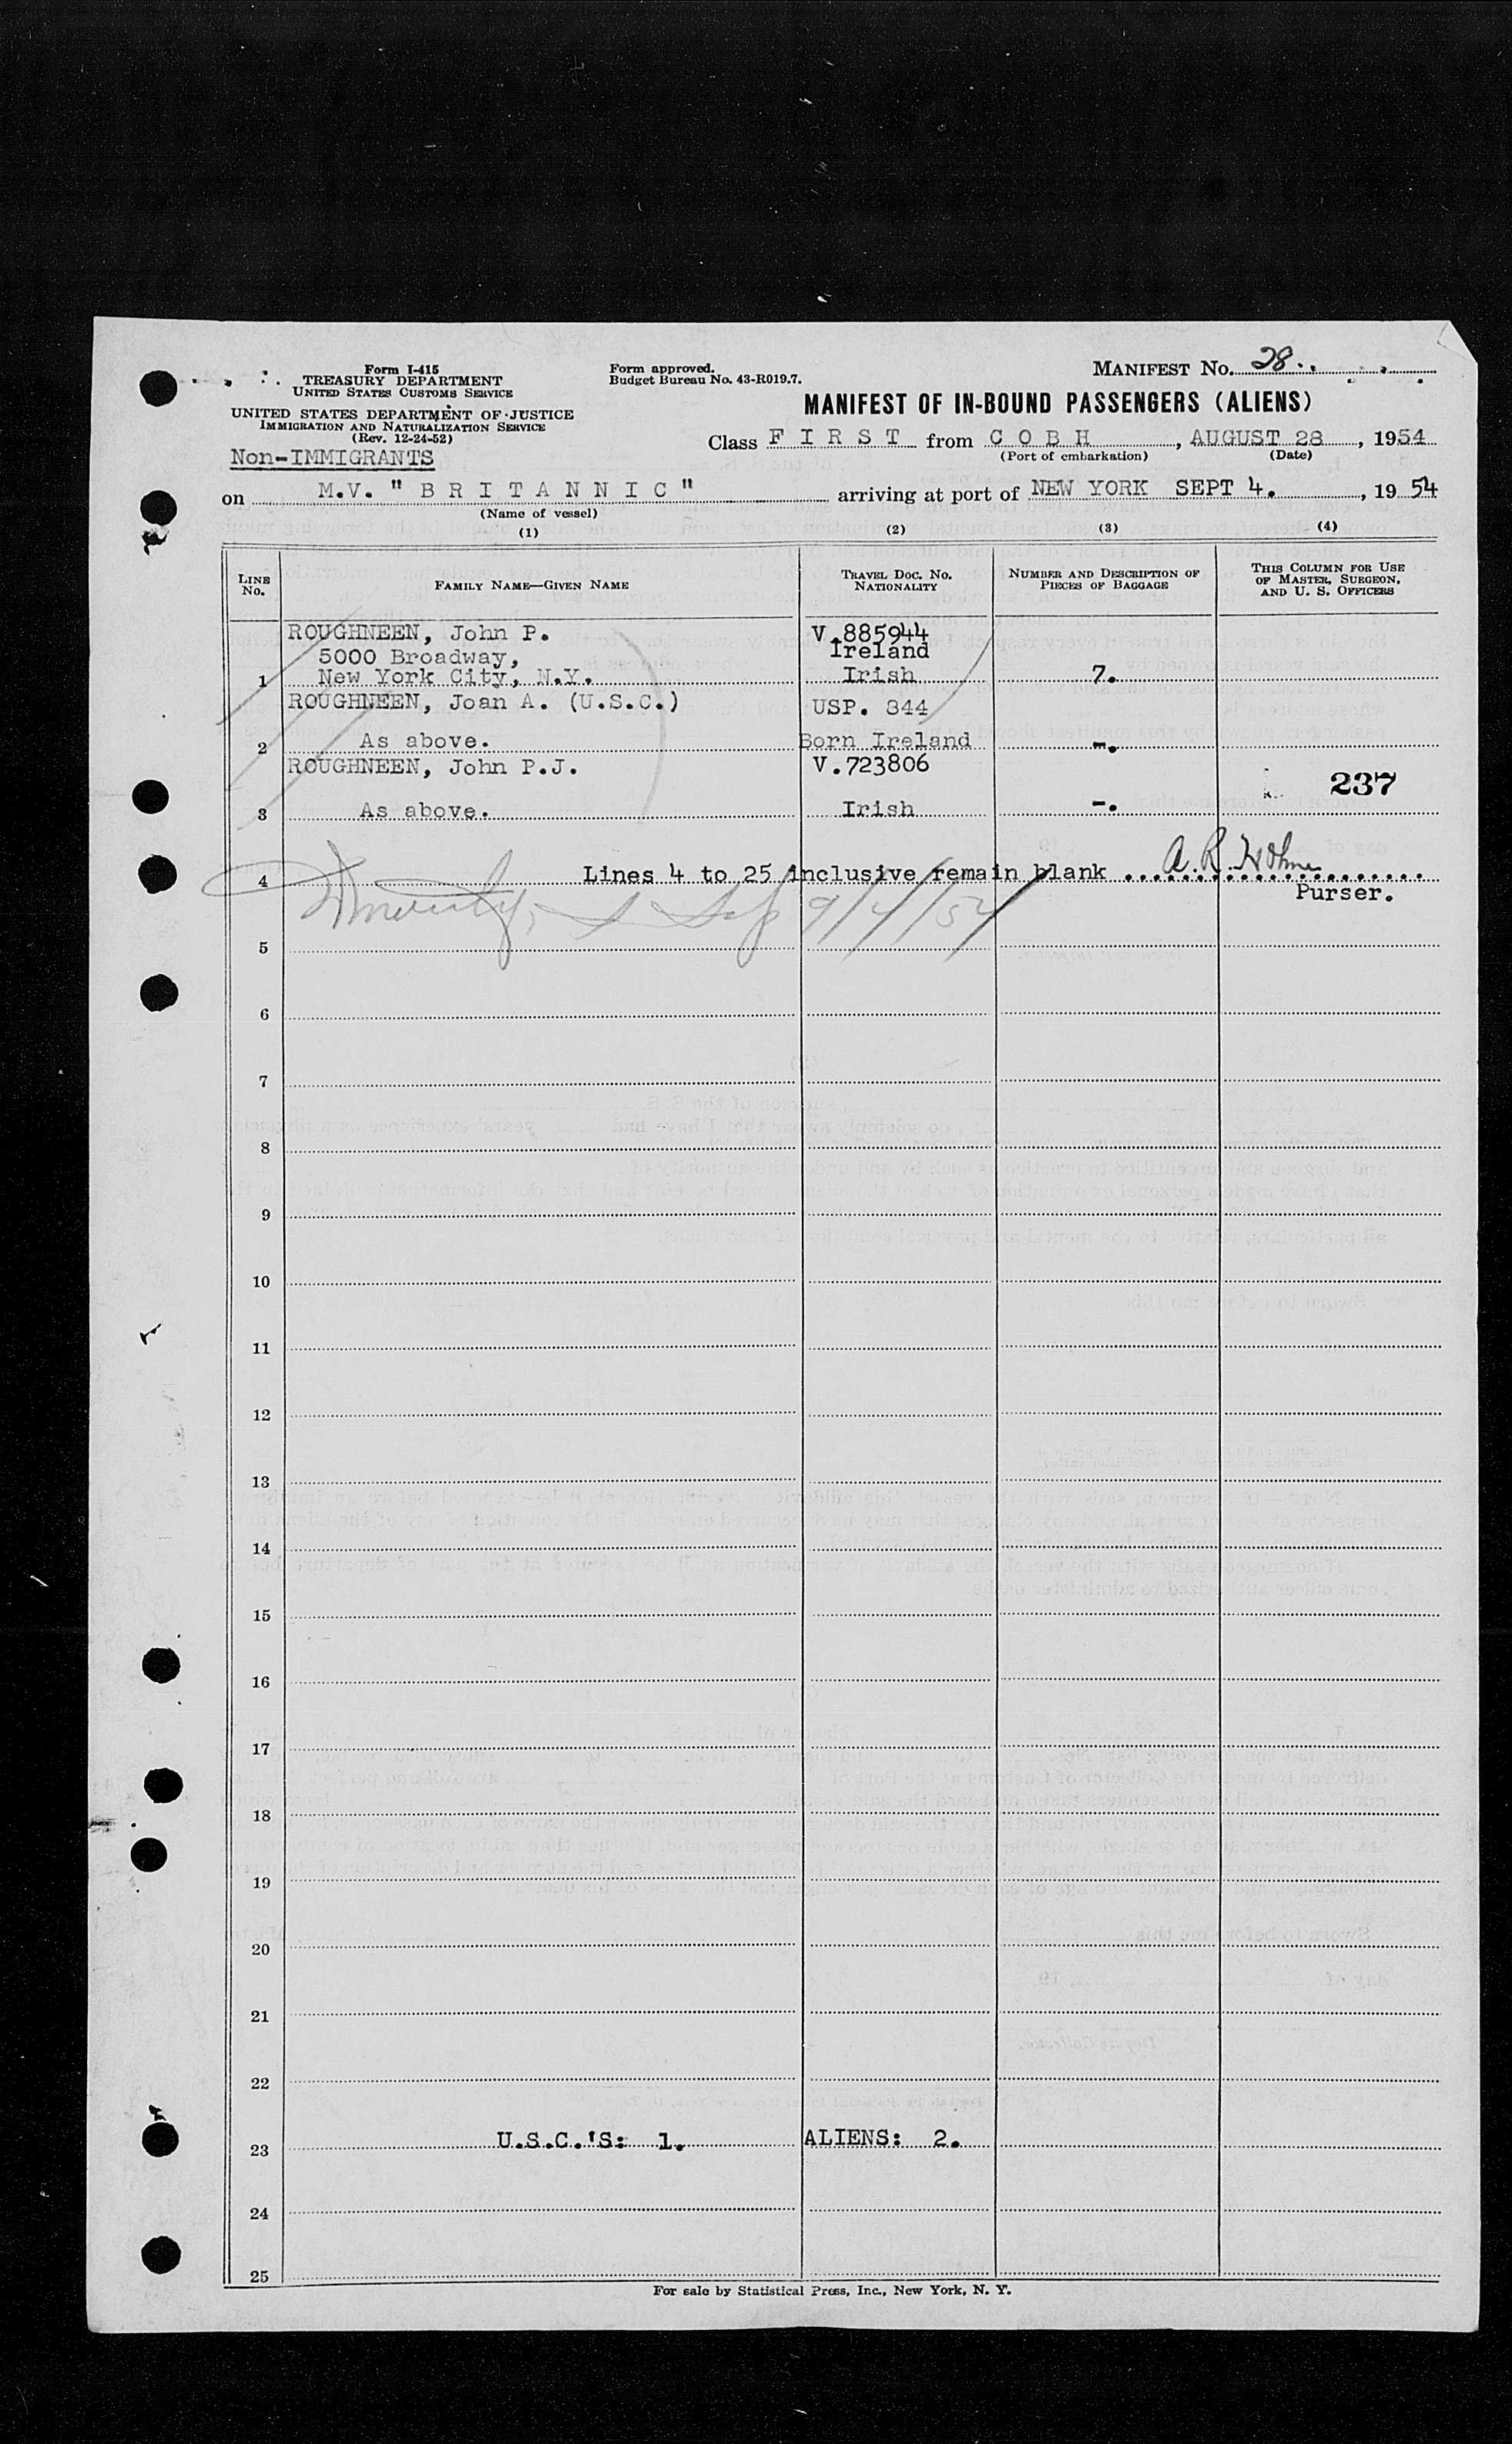 Form I-415
TREASURY DEPARTMENT
UNITED STATES CUSTOMS SERVICE
UNITED STATES DEPARTMENT OF JUSTICE
IMMIGRATION AND NATURALIZATION SERVICE
(Rev. 12-24-52)
Non-IMMIGRANTS
Form approved.
Budget Bureau No. 43-R019.7.
MANIFEST NO. 28.
MANIFEST OF IN-BOUND PASSENGERS (ALIENS)
Class F I R S T from C O B H, AUGUST 28, 1954
(Port of embarkation) (Date)
on M.V. " B R I T A N N I C " arriving at port of NEW YORK SEPT 4., 1954
(Name of vessel)
(1) (2) (3) (4)
LINE NO.
FAMILY NAME—GIVEN NAME
TRAVEL DOC. NO. NATIONALITY
NUMBER AND DESCRIPTION OF PIECES OF BAGGAGE
THIS COLUMN FOR USE OF MASTER, SURGEON, AND U. S. OFFICERS
ROUGHNEEN, John P. V.885944
5000 Broadway, Ireland
1 New York City, N.Y. Irish 7.
ROUGHNEEN, Joan A. (U.S.C.) USP. 844
2 As above. Born Ireland -.
ROUGHNEEN, John P.J. V.723806
237
3 As above. Irish -.
4 Lines 4 to 25 inclusive remain blank A. R.
Purser.
9/4/54
5
6
7
8
9
10
11
12
13
14
15
16
17
18
19
20
21
22
23 U.S.C.'S: 1. ALIENS: 2.
24
25
For sale by Statistical Press, Inc., New York, N. Y.